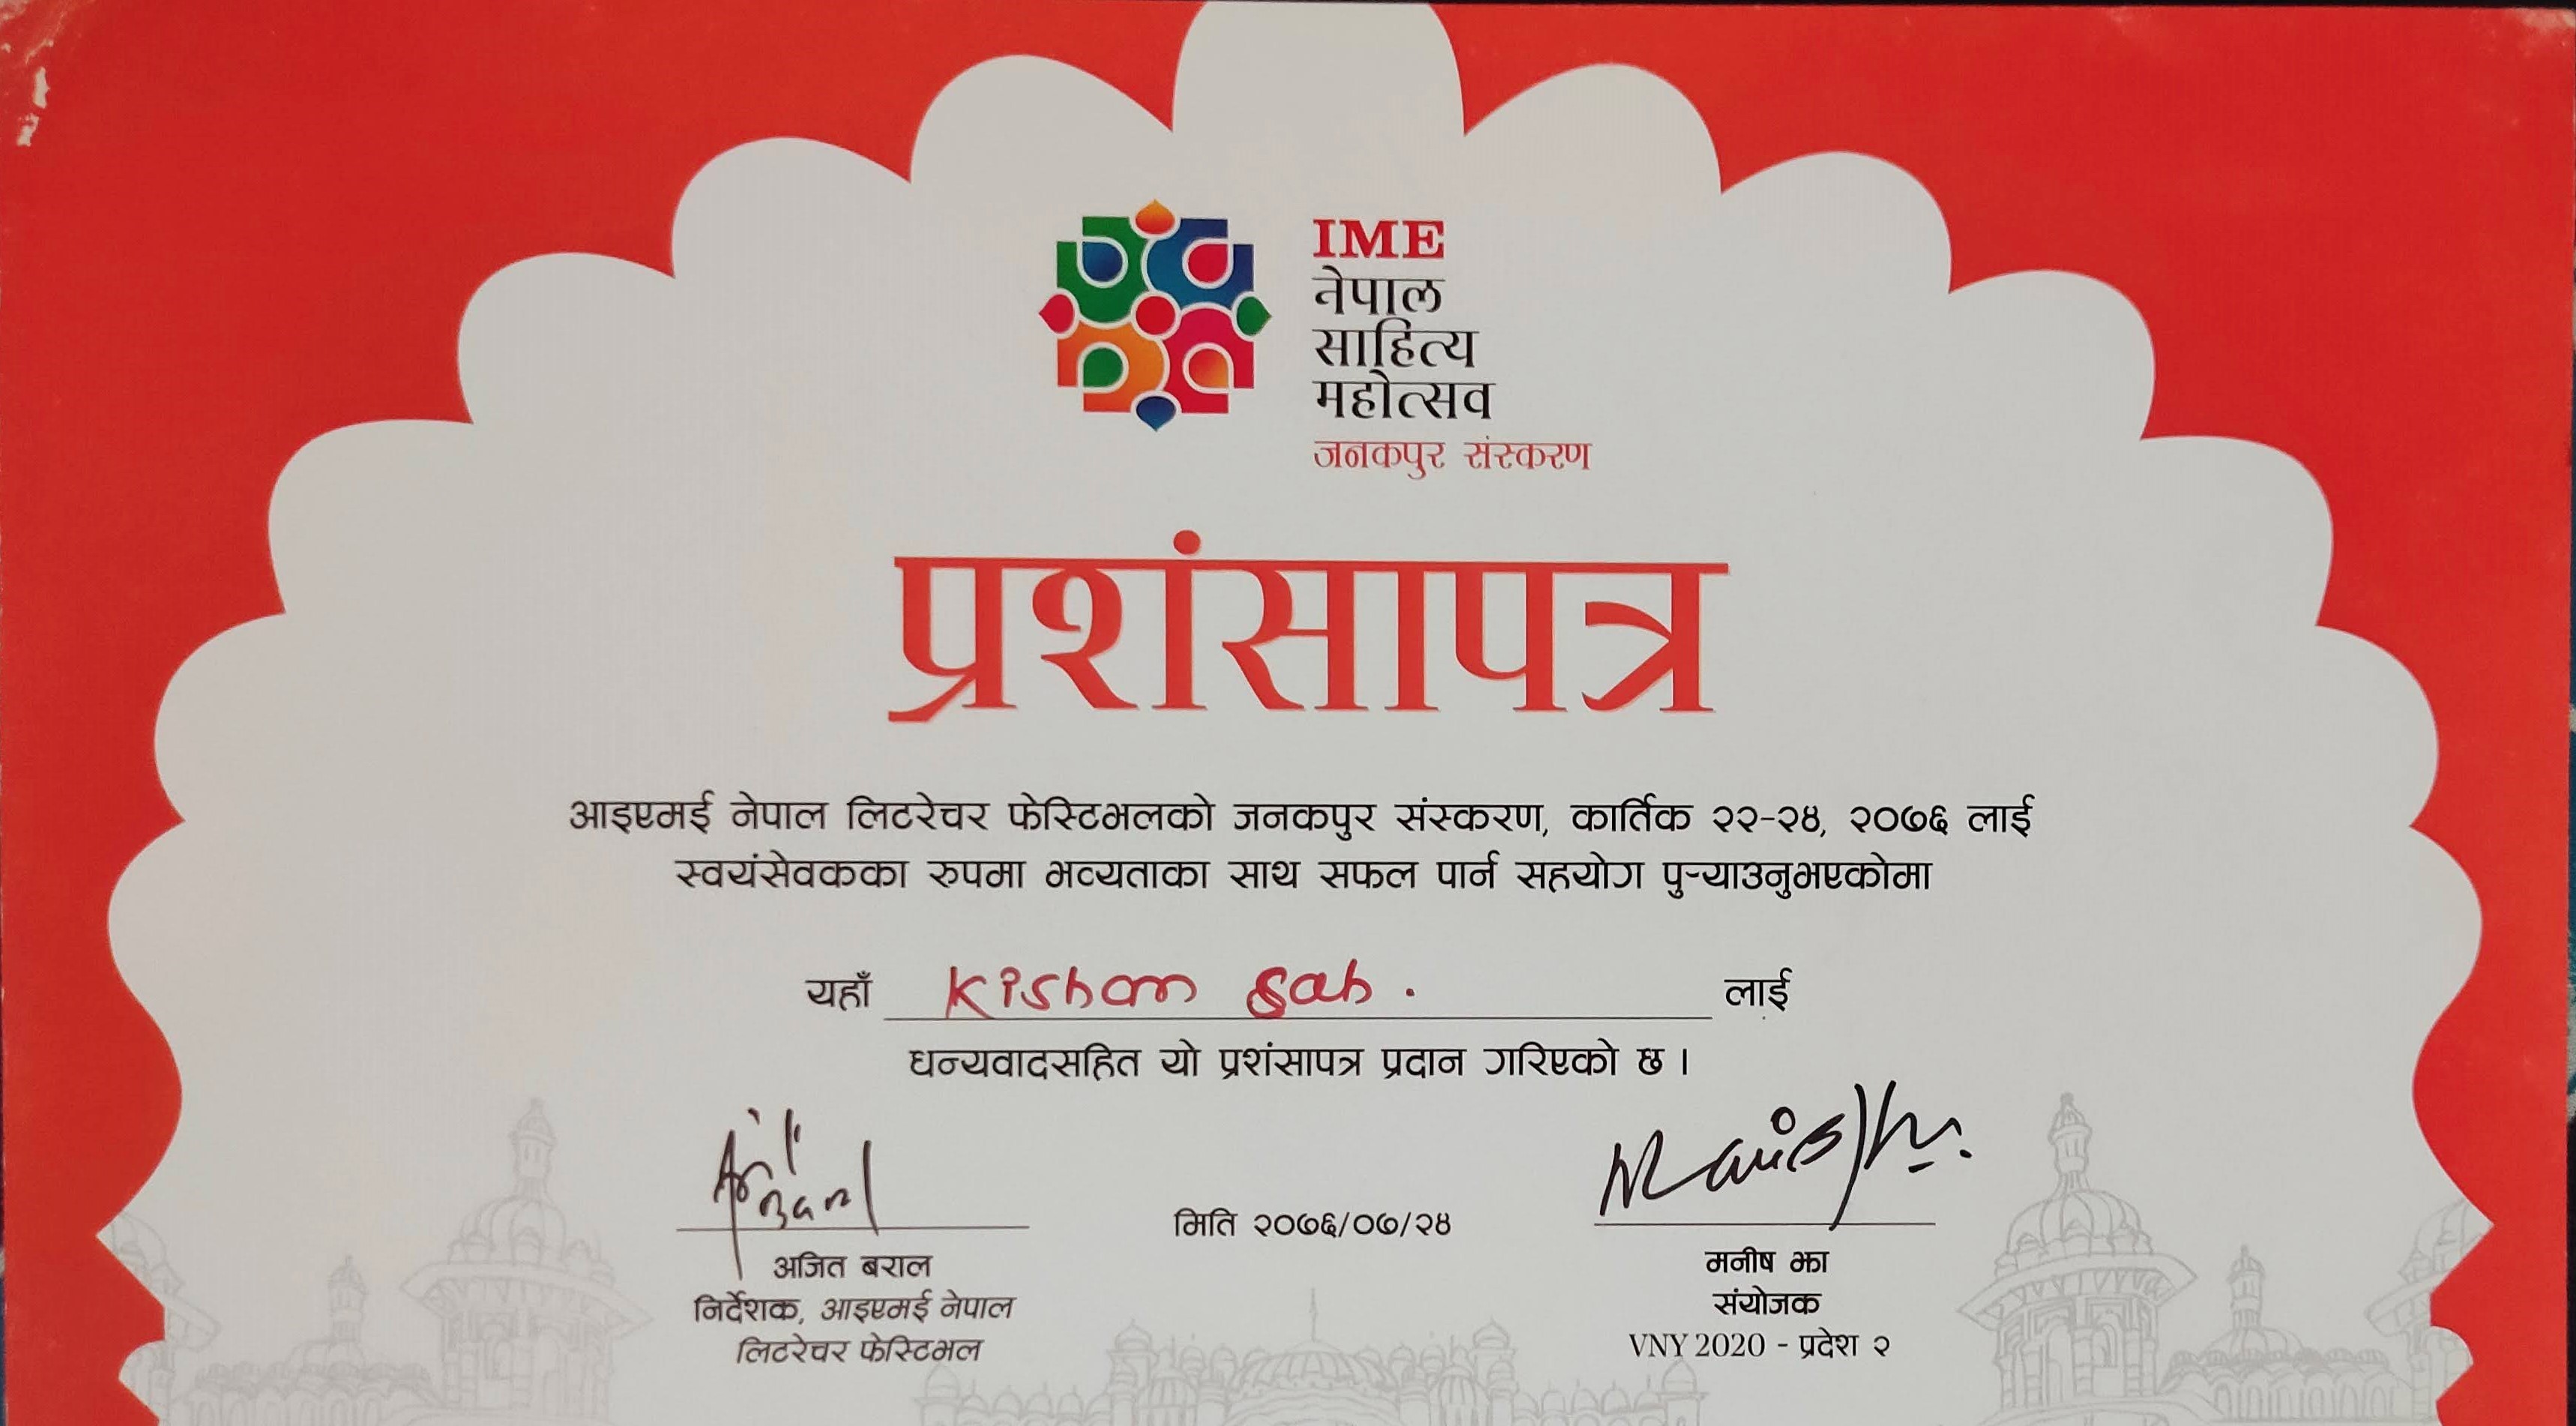 IME
नेपाल
साहित्य
महोत्सव
जनकपुर संस्करण
प्रशंसापत्र
आइएमई नेपाल लिटरेचर फेस्टिभलको जनकपुर संस्करण, कार्तिक २२-२४, २०७६ लाई
स्वयंसेवकका रुपमा भव्यताका साथ सफल पार्न सहयोग पुऱ्याउनुभएकोमा
यहाँ Kishan Sah. लाई
धन्यवादसहित यो प्रशंसापत्र प्रदान गरिएको छ ।
Ajit
Baral
अजित बराल
निर्देशक, आइएमई नेपाल
लिटरेचर फेस्टिभल
मिति २०७६/०७/२४
मनीष झा
संयोजक
VNY 2020 - प्रदेश २